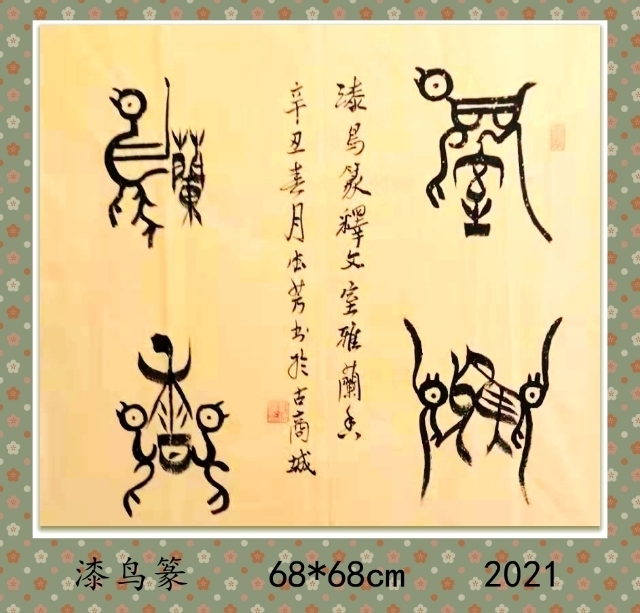 室
雅
漆鸟篆釋文室雅蘭香
辛丑春月芳书於古商城
蘭
香
漆鸟篆 68*68cm 2021